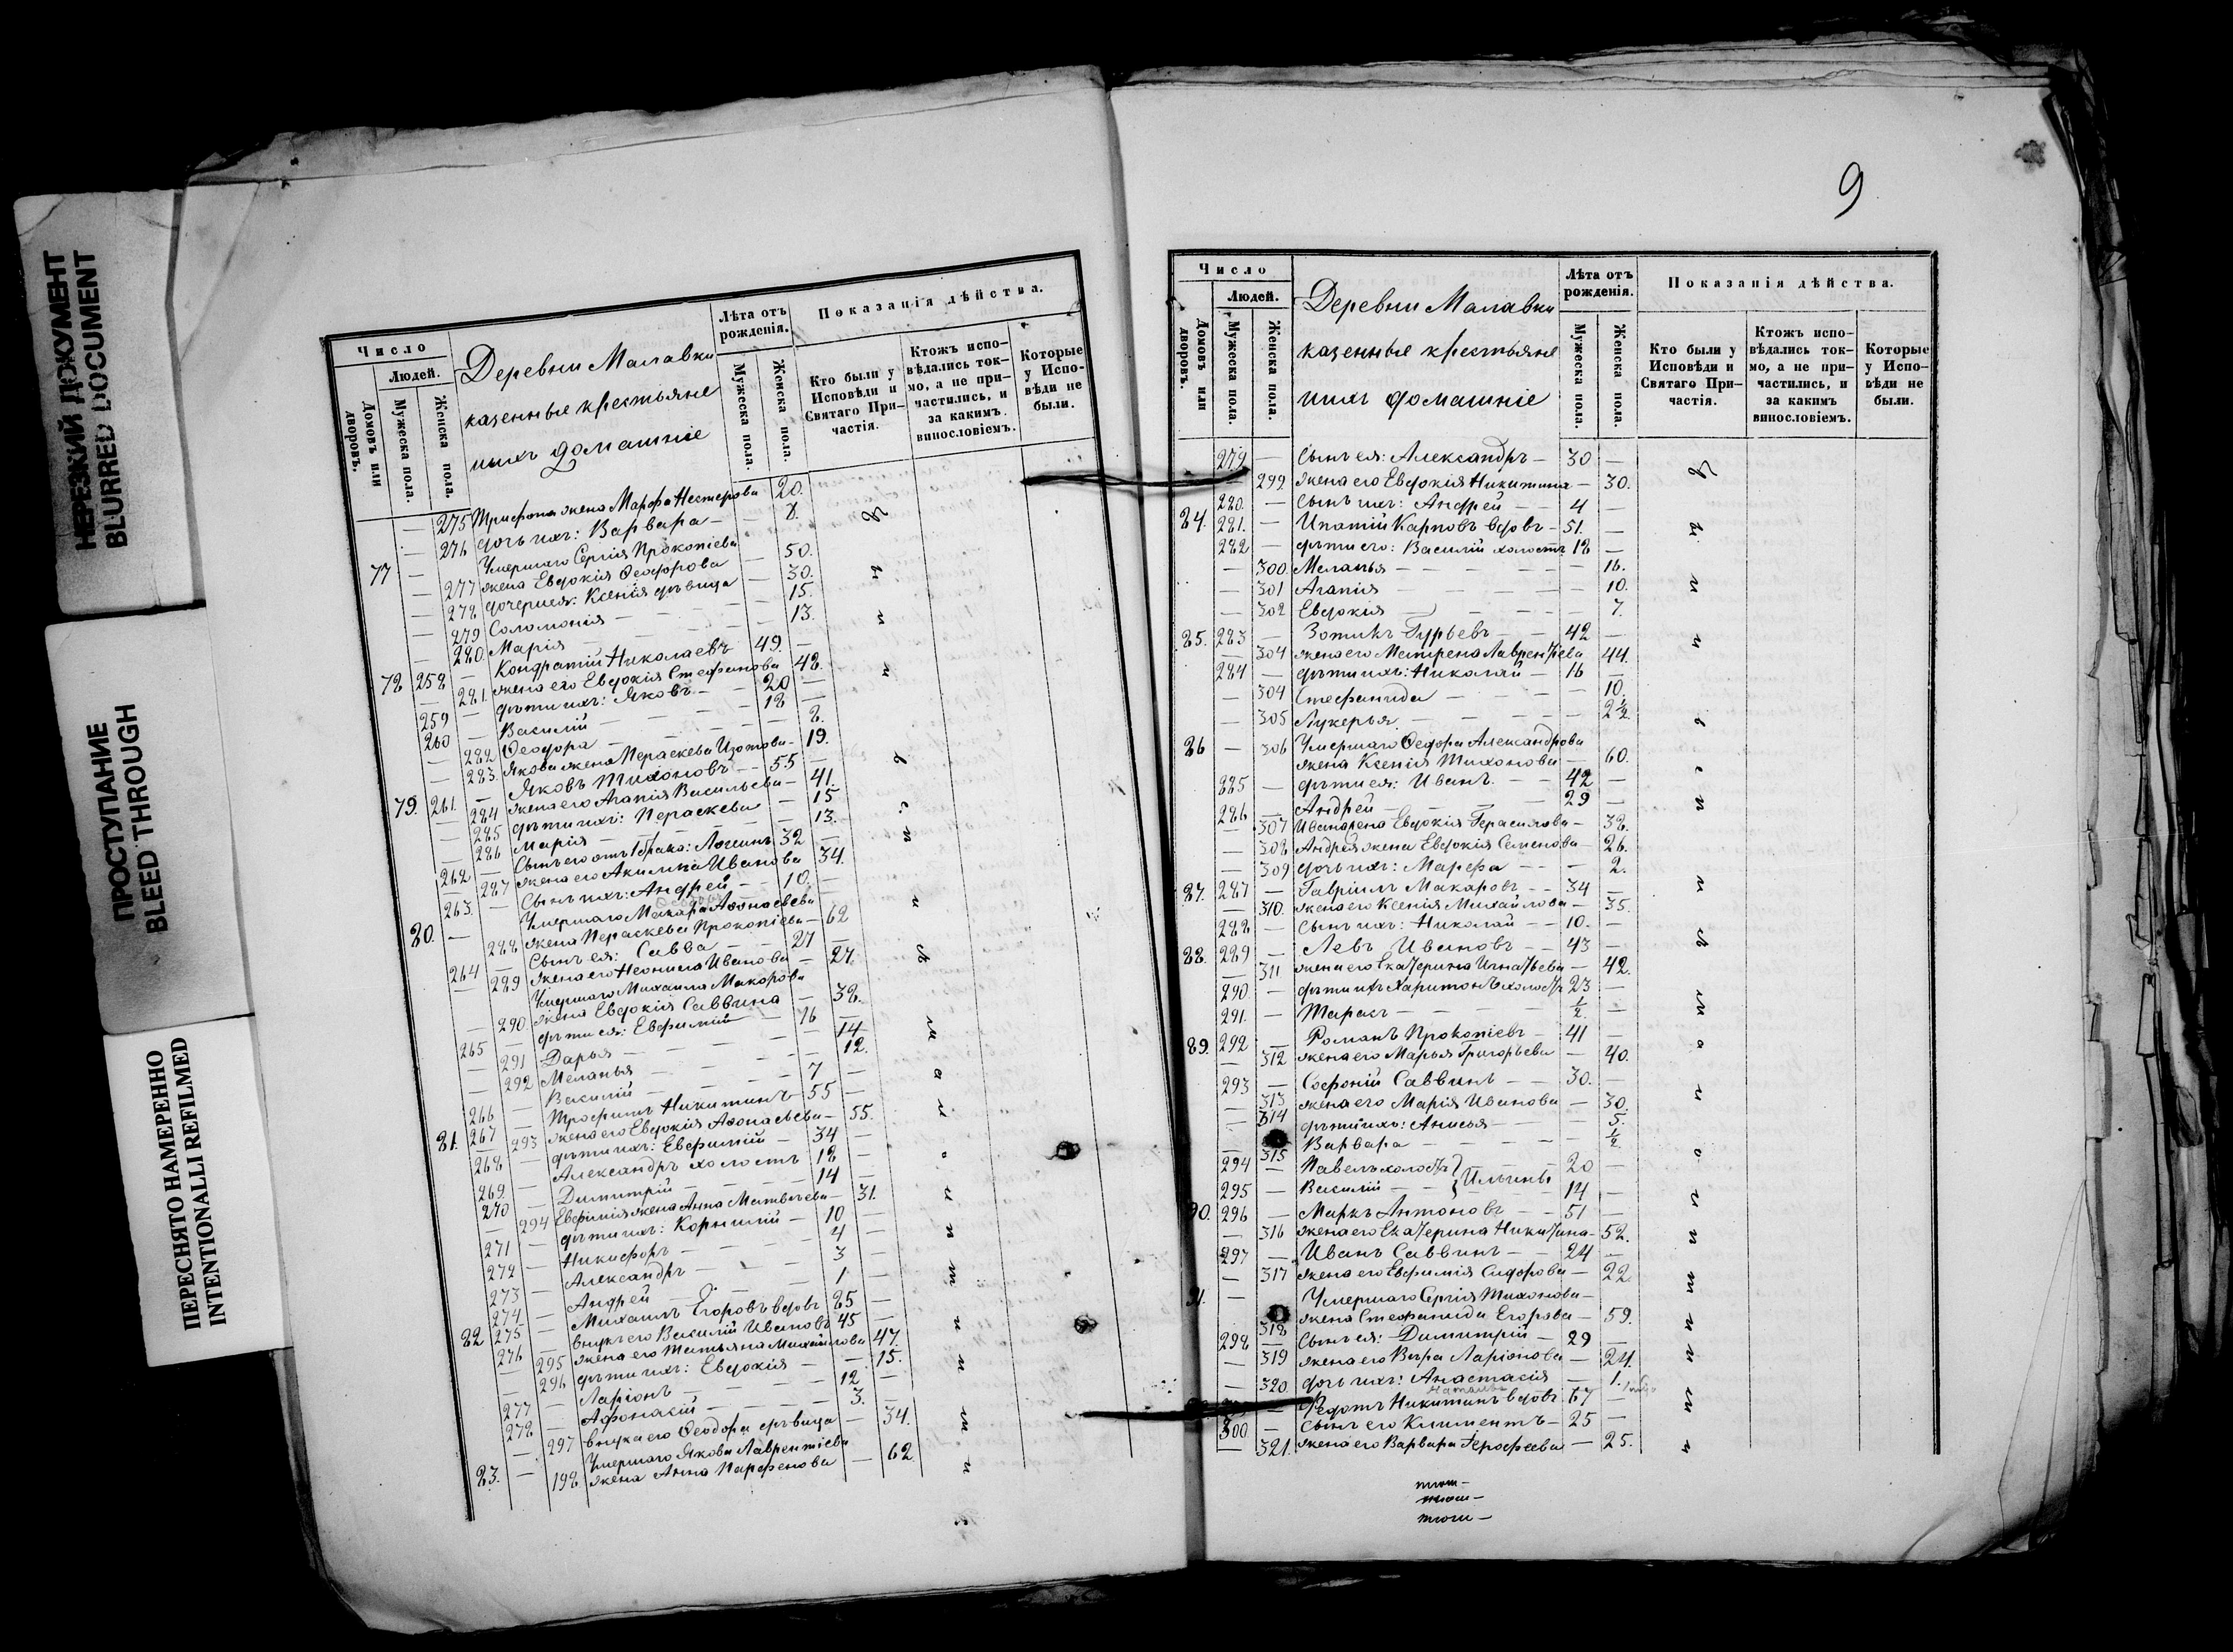 НЕРЕЗКИЙ ДОКУМЕНТ
BLURRED DOCUMENT
ПРОСТУПАНИЕ
BLEED THROUGH
ПЕРЕСНЯТО НАМЕРЕННО
INTENTIONALLI REFILMED
Число
Людей.
Домовъ или дворовъ.
Мужеска пола.
Женска пола.
Деревни Малавки
казенные крестьяне
ихъ домашніе
Лѣта отъ рожденія.
Мужеска пола.
Женска пола.
Показанія дѣйства.
Кто были у Исповѣди и Святаго Причастія.
Ктожъ исповѣдались токмо, а не причастились, и за какимъ винословіемъ.
Которые у Исповѣди не были.
— 275 Трифона жена Марфа Нестерова 20.
— 276 дочь ихъ: Варвара —
77 — Умершаго Сергія Прокопіева
— 277 жена Евдокія Ѳеодорова — 50.
— 278 дочери ея: Ксенія дѣвица — 30.
— 279 Соломонія — 15.
— 280. Марія — 13.
78 258 — Кондратій Николаевъ 49. —
— 281. жена его Евдокія Стефанова 48.
259 — дѣти ихъ: Яковъ — 20 —
260 — Василій — 18 —
— 282 Ѳеодора — 8.
— 283. Якова жена Пераскева Изотова — 19.
79. 261. — Яковъ Тихоновъ — 55 —
— 284 жена его Агапія Васильева — 41.
— 285 дѣти ихъ: Пераскева — 15
— 286 Марія — 13.
262 — Сынъ его отъ 1 брака: Логинъ 32 —
— 287 жена его Акилина Иванова 34.
263. — Сынъ ихъ: Андрей — 10. —
80. — Умершаго Макара Аѳонасьева
— 288 жена Пераскева Прокопіева — 62
264 — Сынъ ея: Савва — 27 —
— 289 жена его Неонила Иванова — 27.
Умершаго Михаила Макарова
— 290. жена Евдокія Саввина — 38.
265 — дѣти ея: Евфимій — 16 —
— 291 Дарья — 14
— 292 Меланья — 12.
266 — Василій — 7 —
81. 267 — Трофимъ Никитинъ 55 —
— 293 жена его Евдокія Аѳонасьева — 55.
268 — дѣти ихъ: Евфимій — 34 —
269 — Александръ холостъ 18 —
270 — Димитрій — 14 —
— 294 Евфимія жена Анна Матвѣева — 31.
271 — дѣти ихъ: Корнилій — 10 —
272 — Никифоръ — 4 —
273 — Александръ — 3
274 — Андрей — 1 —
82. 275 — Михаилъ Егоровъ вдовъ 85 —
276 — внукъ его Василій Ивановъ 45 —
— 295 жена его Татьяна Михайлова 47.
— 296 дѣти ихъ: Евдокія — 15.
277 — Ларіонъ — 12 —
278 — Аѳонасій — 3. —
— 297 внука его Ѳеодора дѣвица — 34.
83. — Умершаго Якова Лаврентіева
— 198 жена Анна Парфенова — 62
9
Число
Людей.
Домовъ или дворовъ.
Мужеска пола.
Женска пола.
Деревни Малавки
казенные крестьяне
ихъ домашніе
Лѣта отъ рожденія.
Мужеска пола.
Женска пола.
Показанія дѣйства.
Кто были у Исповѣди и Святаго Причастія.
Ктожъ исповѣдались токмо, а не причастились, и за какимъ винословіемъ.
Которые у Исповѣди не были.
279 — Сынъ ея: Александръ — 30 —
299 жена его Евдокія Никитина — 30.
280. — Сынъ ихъ: Андрей — 4 —
84. 281. — Ипатій Карповъ вдовъ — 51 —
282 — дѣти его: Василій холостъ 18 —
— 300 Меланья — 16.
— 301 Агапія — 10.
— 302 Евдокія — 7.
85. 283 — Зотикъ Гурьевъ — 42 —
— 304 жена его Матрена Лаврентьева 44.
284 — дѣти ихъ: Николай — 16 —
— 304 Стефанида — 10.
— 305 Лукерья — 2 1/2
86 — 306 Умершаго Ѳедора Александрова
жена Ксенія Тихонова — 60.
285 — дѣти ея: Иванъ — 42 —
286 — Андрей — 29 —
— 307 Ивана жена Евдокія Герасимова — 38.
— 308 Андрея жена Евдокія Семенова — 26.
— 309 дочь ихъ: Марфа — 2.
87. 287 — Гавріилъ Макаровъ — 34 —
— 310. жена его Ксенія Михайлова — 35.
288 — Сынъ ихъ: Николай — 10. —
88. 289 — Левъ Ивановъ — 43 —
— 311 жена его Екатерина Игнатьева — 42.
290 — дѣти ихъ Харитонъ холостъ 23 —
291. — Тарасъ — 1/2 —
89. 292 — Романъ Прокопіевъ — 41 —
— 312 жена его Марья Григорьева — 40.
293 — Софоній Саввинъ — 30. —
— 313 жена его Марія Иванова — 30.
— 314 дѣти ихъ: Анисья — 5.
— 315 Варвара — 1/2
294 — Павелъ холостъ } Ильины 20 —
295 — Василій — 14 —
90. 296 — Маркъ Антоновъ — 51 —
— 316 жена его Екатерина Никитина — 52.
297 — Иванъ Саввинъ — 24 —
— 317 жена его Евфимія Сидорова — 22
91. — Умершаго Сергія Тихонова —
318 жена Стефанида Егорова — 59.
298 — Сынъ ея: Димитрій — 29 —
— 319 жена его Вѣра Ларіонова — 24.
— 320. дочь ихъ: Анастасія — 1.
— Федотъ Никитинъ вдовъ 67 —
300 — Сынъ его Климентъ — 25 —
— 321. жена его Варвара Ерофеева — 25.